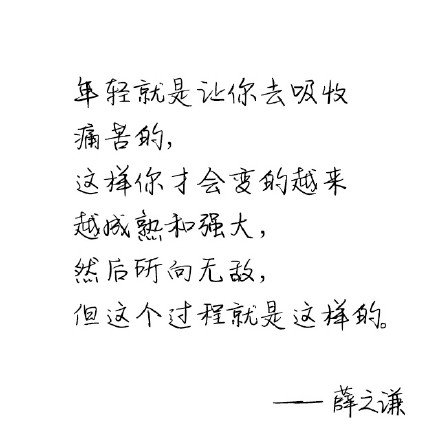 年轻就是让你去吸收
痛苦的,
这样你才会变的越来
越成熟和强大,
然后所向无敌,
但这个过程就是这样的。
——薛之谦